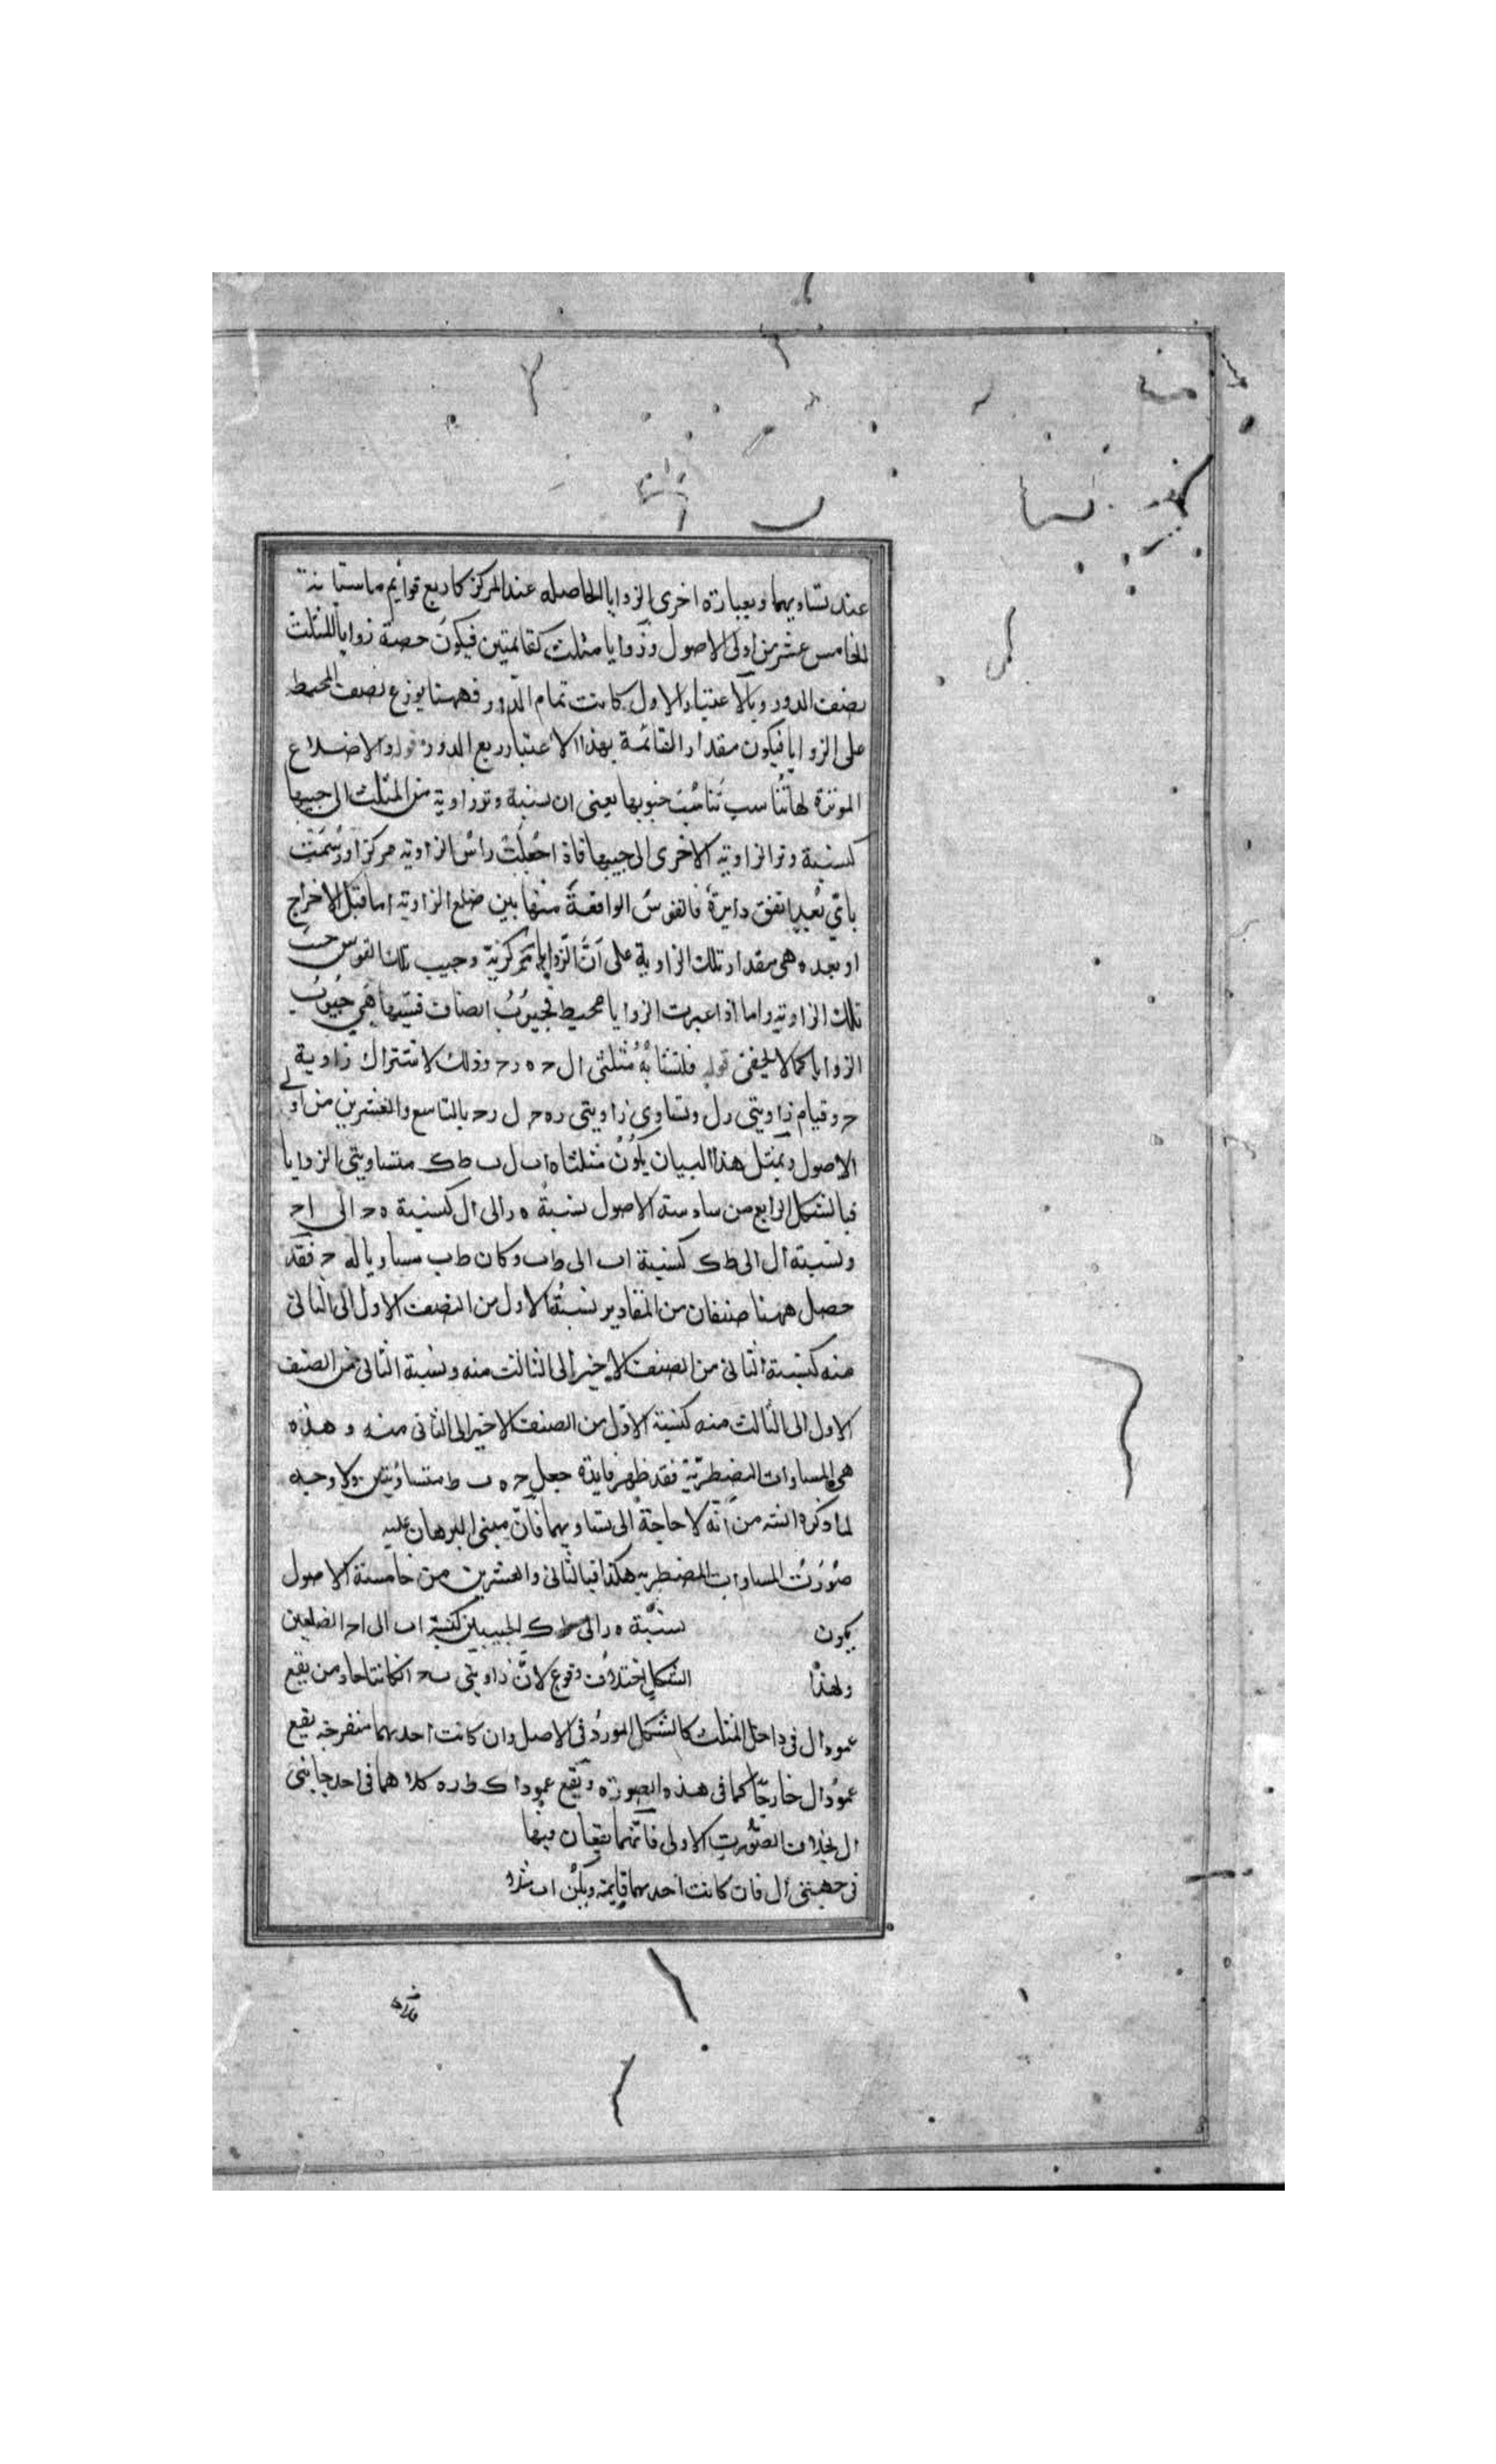 عند تساويهما وبعبارة اخرى الزوايا الحاصله عند المركز كاربع قوايم ماستبانة
الخامس عشر من اولى الاصول وزوايا مثلث كقائمتين فيكون حصة زوايا المثلث
نصف الدور وبالاعتبار الاول كانت تمام الدور فههنا يوزع نصف المحيط
على الزوايا فيكون مقدار القائمة بهذا الاعتبار ربع الدور قوله والاضلاع
الموترة لها تناسب تناسب جيوبها يعنى ان نسبة وتر زاوية من المثلث الى جيبها
كنسبة وتر الزاويه الاخرى الى جيبها فاذا جعلت راس الزاويه مركزا ورسمت
باي بعد اتفق دايرة فالقوس الواقعة منها بين ضلع الزاويه اما قبل الاخراج
او بعده هى مقدار تلك الزاوية على ان الزوايا مركزية وجيب تلك القوس جيب
تلك الزاويه واما اذا اعبرت الزوايا محيطـ فجيوب انصاف قسيها هي جيوب
الزوايا كما لا يخفى قوله فلتشابه مثلثى ال ح ه ر ح وذلك لاشتراك زاوية
ح وقيام زاويتى ر ل وتساوى زاويتى ر ه ح ل ر ح بالتاسع والعشرين من اولى
الاصول وبمثل هذا البيان يكون مثلثا ه ا ب ل ب ط ك متساويتى الزوايا
فبالشكل الرابع من سادسة الاصول نسبة ه ر الى ال كنسبة ه ح الى ا ح
ونسبة ال الى ط ك كنسبة ا ب الى ط ب وكان ط ب مساويا له ح فقد
حصل ههنا صنفان من المقادير نسبة الاول من الصنف الاول الى الثانى
منه كنسبة الثانى من الصنف الاخير الى الثالث منه ونسبة الثانى من الصنف
الاول الى الثالث منه كنسبة الاول من الصنف الاخير الى الثانى منه وهذه
هى المساوات المضطربة فقد ظهر فايدة جعل ح ه ب ط متساويتين ولا وجه
لما ذكره من انه لا حاجة الى تساويهما فان مبنى البرهان عليه
صورت المساوات المضطربه هكذا فبالثانى والعشرين من خامسة الاصول
يكون نسبة ه ر الى ط ك الجيبين كنسبة ا ب الى ا ح الضلعين
ولهذا الشكل اختلاف وقوع لان زاويتى ب ح ان كانتا حادتين يقع
عمود ال فى داخل المثلث كالشكل المورد فى الاصل وان كانت احديهما منفرجه يقع
عمود ال خارجا كما فى هذه الصورة ويقع عمودا ك ط ر ه كلاهما فى احد جانبى
ال بخلاف الصورت الاولى فانهما يقعان فيها
فى جهتى ال فان كانت احديهما قايمة ويكن ا ب